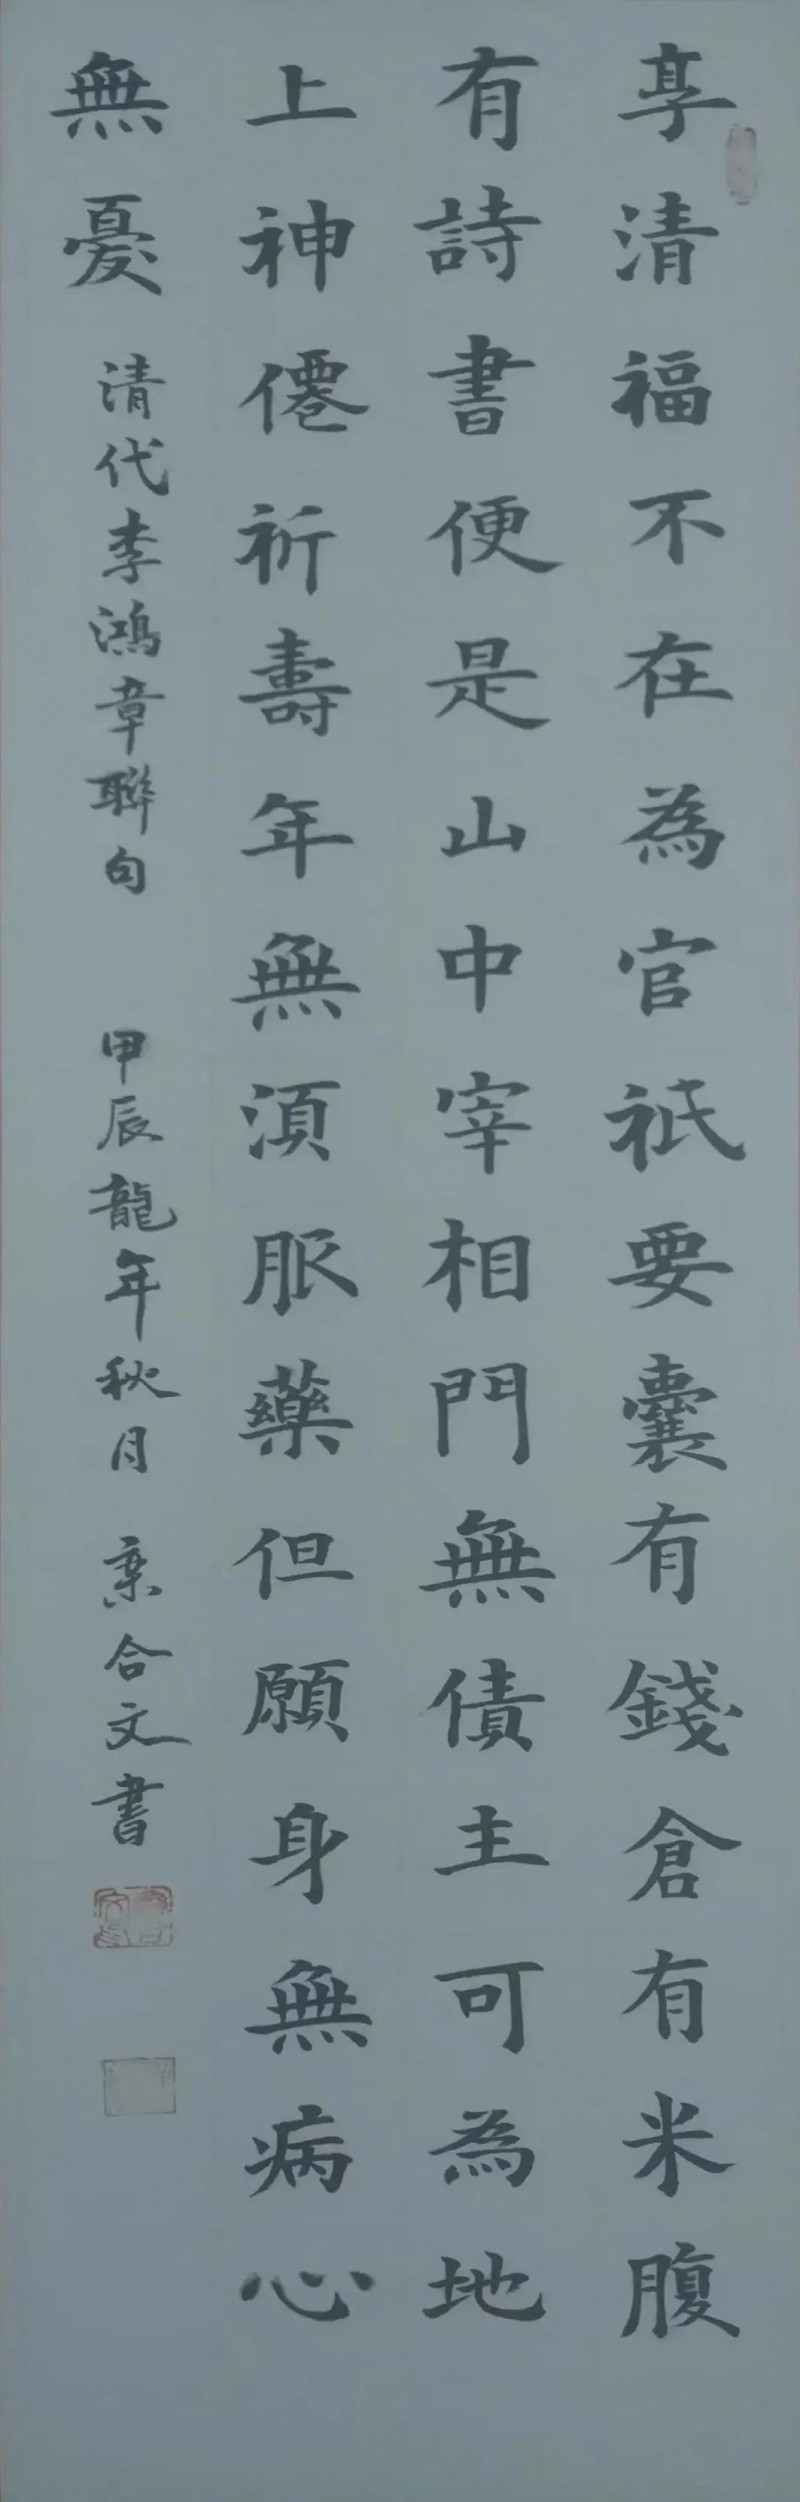 享清福不在為官祇要囊有錢倉有米腹
有詩書便是山中宰相門無債主可為地
上神僊祈壽年無須服藥但願身無病心
無憂
清代李鴻章聯句
甲辰龍年秋月
合文書